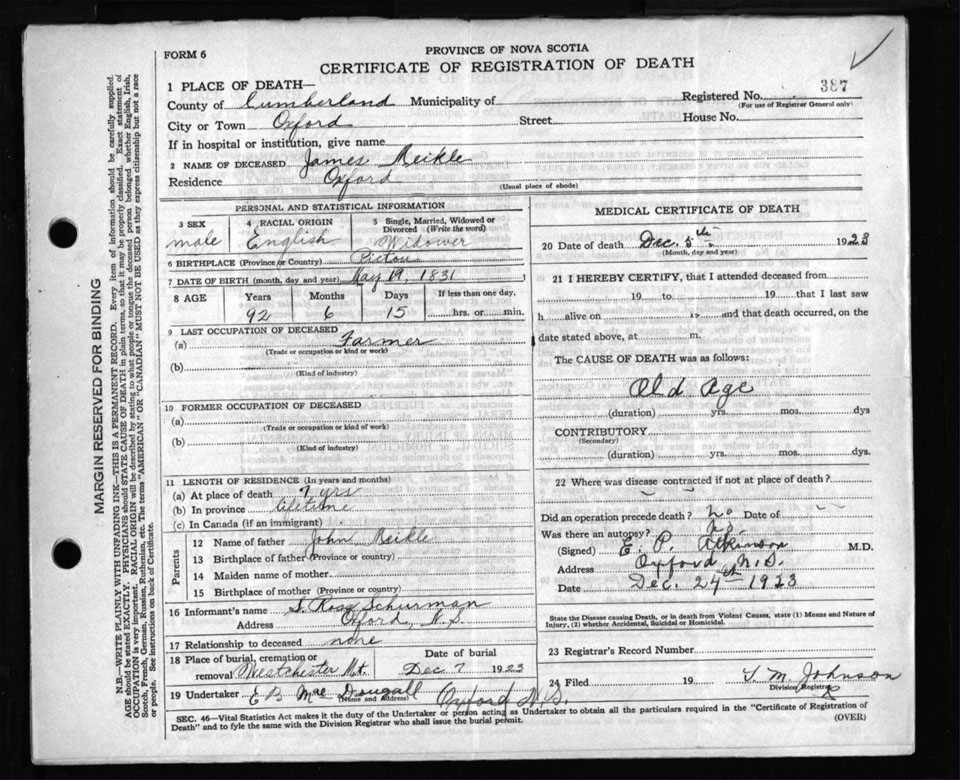 FORM 6
PROVINCE OF NOVA SCOTIA
CERTIFICATE OF REGISTRATION OF DEATH
1 PLACE OF DEATH—
Registered No. 387
(For use of Registrar General only)
County of Cumberland Municipality of
City or Town Oxford Street House No.
If in hospital or institution, give name
2 NAME OF DECEASED James Meikle
Residence Oxford
(Usual place of abode)
PERSONAL AND STATISTICAL INFORMATION
3 SEX
male
4 RACIAL ORIGIN
English
5 Single, Married, Widowed or Divorced (Write the word)
Widower
6 BIRTHPLACE (Province or Country) Pictou
7 DATE OF BIRTH (month, day and year) May 19, 1831
8 AGE Years Months Days If less than one day,
92 6 15 hrs. or min.
9 LAST OCCUPATION OF DECEASED
(a) Farmer
(Trade or occupation or kind or work)
(b)
(Kind of industry)
10 FORMER OCCUPATION OF DECEASED
(a)
(Trade or occupation or kind of work)
(b)
(Kind of industry)
11 LENGTH OF RESIDENCE (In years and months)
(a) At place of death 7 yrs
(b) In province lifetime
(c) In Canada (if an immigrant)
Parents
12 Name of father John Meikle
13 Birthplace of father (Province or country)
14 Maiden name of mother
15 Birthplace of mother (Province or country)
16 Informant's name S. Ross Schurman
Address Oxford, N.S.
17 Relationship to deceased none
18 Place of burial, cremation or removal Westchester Mt. Date of burial Dec 7 1923
19 Undertaker E B MacDougall Oxford N.S.
(Name and Address)
MEDICAL CERTIFICATE OF DEATH
20 Date of death Dec. 5th 1923
(Month, day and year)
21 I HEREBY CERTIFY, that I attended deceased from
19 to 19 that I last saw
h alive on 19 and that death occurred, on
date stated above, at m.
The CAUSE OF DEATH was as follows:
Old Age
(duration) yrs. mos. dys
CONTRIBUTORY
(Secondary)
(duration) yrs. mos. dys.
22 Where was disease contracted if not at place of death?
Did an operation precede death? no Date of
Was there an autopsy? no
(Signed) E. P. Atkinson M.D.
Address Oxford N.S.
Date Dec. 24th 1923
State the Disease causing Death, or in death from Violent Causes, state (1) Means and Nature of
Injury, (2) whether Accidental, Suicidal or Homicidal.
23 Registrar's Record Number
24 Filed 19 T. M. Johnson
Division Registrar
SEC. 46—Vital Statistics Act makes it the duty of the Undertaker or person acting as Undertaker to obtain all the particulars required in the "Certificate of Registration of
Death" and to fyle the same with the Division Registrar who shall issue the burial permit.
(OVER)
MARGIN RESERVED FOR BINDING
N.B.—WRITE PLAINLY WITH UNFADING INK—THIS IS A PERMANENT RECORD. Every item of information should be carefully supplied.
AGE should be stated EXACTLY. PHYSICIANS should STATE CAUSE OF DEATH in plain terms, so that it may be properly classified. Exact statement of
OCCUPATION is very important. RACIAL ORIGIN will be described by stating to what people or tongue the deceased person belonged whether English, Irish,
Scotch, French, German, Russian, Ruthenian, etc. The terms "AMERICAN" OR "CANADIAN" MUST NOT BE USED as they express citizenship but not a race
or people. See instructions on back of Certificate.